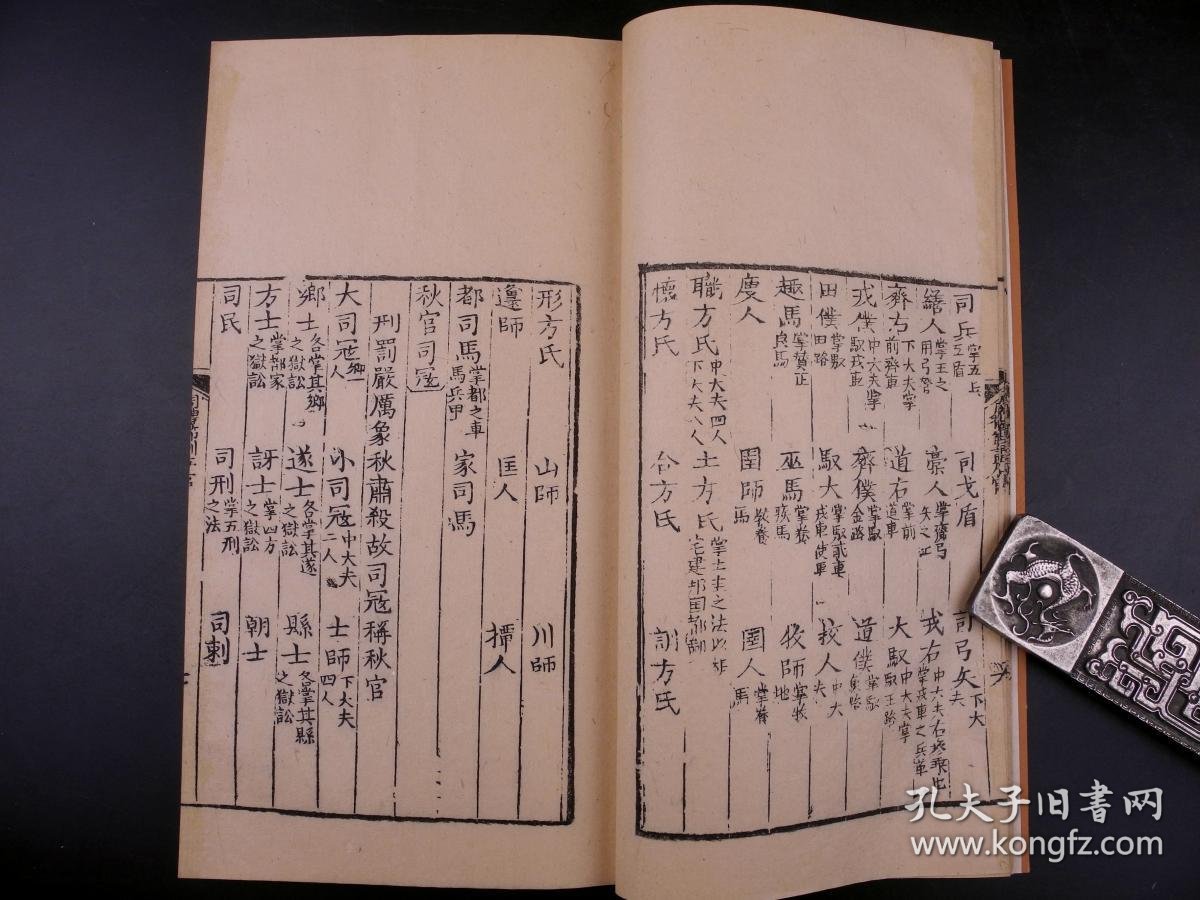 司兵掌五兵五盾 司戈盾 司弓矢下大夫
繕人掌王之用弓弩 槀人掌齎弓矢之 戎右中大夫右 掌戎車之兵革
齊右下大夫掌前齊車 道右掌前道車 大馭中大夫掌馭王路
戎僕中大夫掌馭戎車 齊僕掌馭金路 道僕掌馭象路
田僕掌馭田路 馭夫掌馭貳車 校人中大夫
趣馬掌贊正良馬 巫馬掌養疾馬 牧師掌牧地
廋人 圉師教養馬 圉人掌養馬
職方氏中大夫四人下大夫八人 土方氏掌土圭之法以 宅建邦国都鄙
懷方氏 合方氏 訓方氏
形方氏 山師 川師
邍師 匡人 撢人
都司馬掌都之車馬兵甲 家司馬
秋官司冦
刑罰嚴厲象秋肅殺故司冦稱秋官
大司冦卿一人 小司冦中大夫二人 士師下大夫四人
鄉士各掌其鄉之獄訟 遂士各掌其遂之獄訟 縣士各掌其縣之獄訟
方士掌都家之獄訟 訝士掌四方之獄訟 朝士
司民 司刑掌五刑之法 司刺
孔夫子旧书网
www.kongfz.com